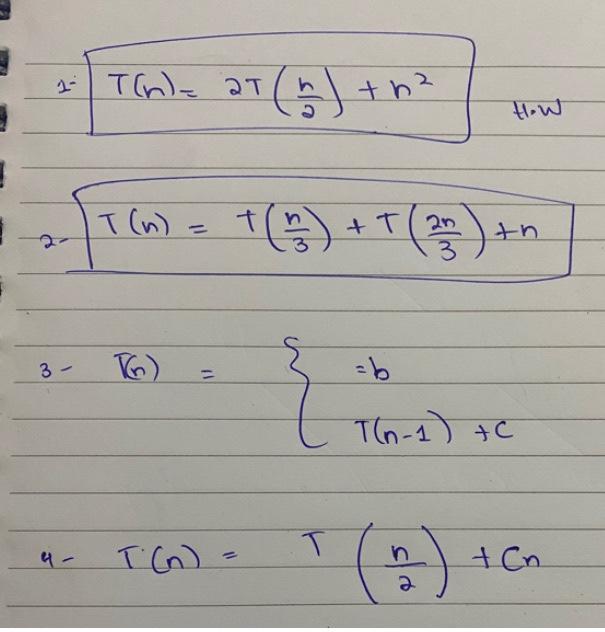 1- T(n) = 2T(n/2) + n²
H.W
2- T(n) = T(n/3) + T(2n/3) + n
3- T(n) = { =b
T(n-1) + C
4- T(n) = T(n/2) + Cn